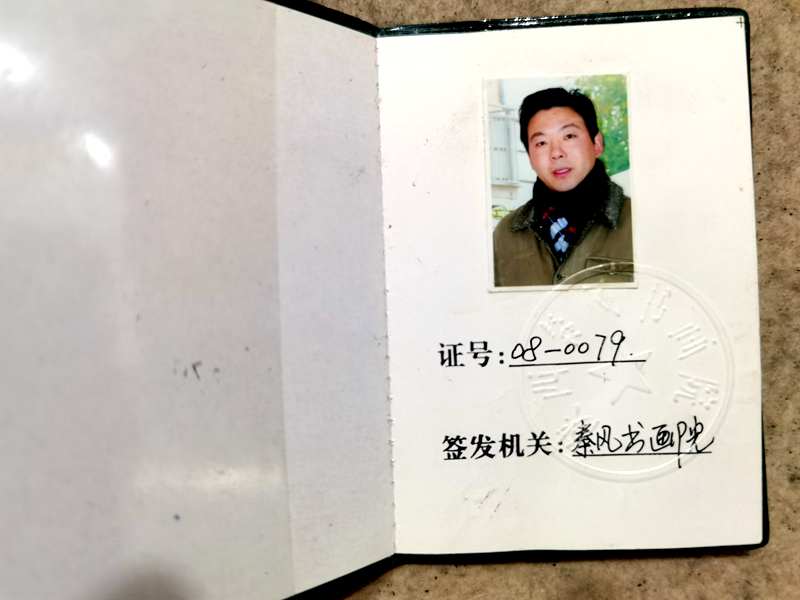 证号:08-0079.
签发机关:秦风书画院